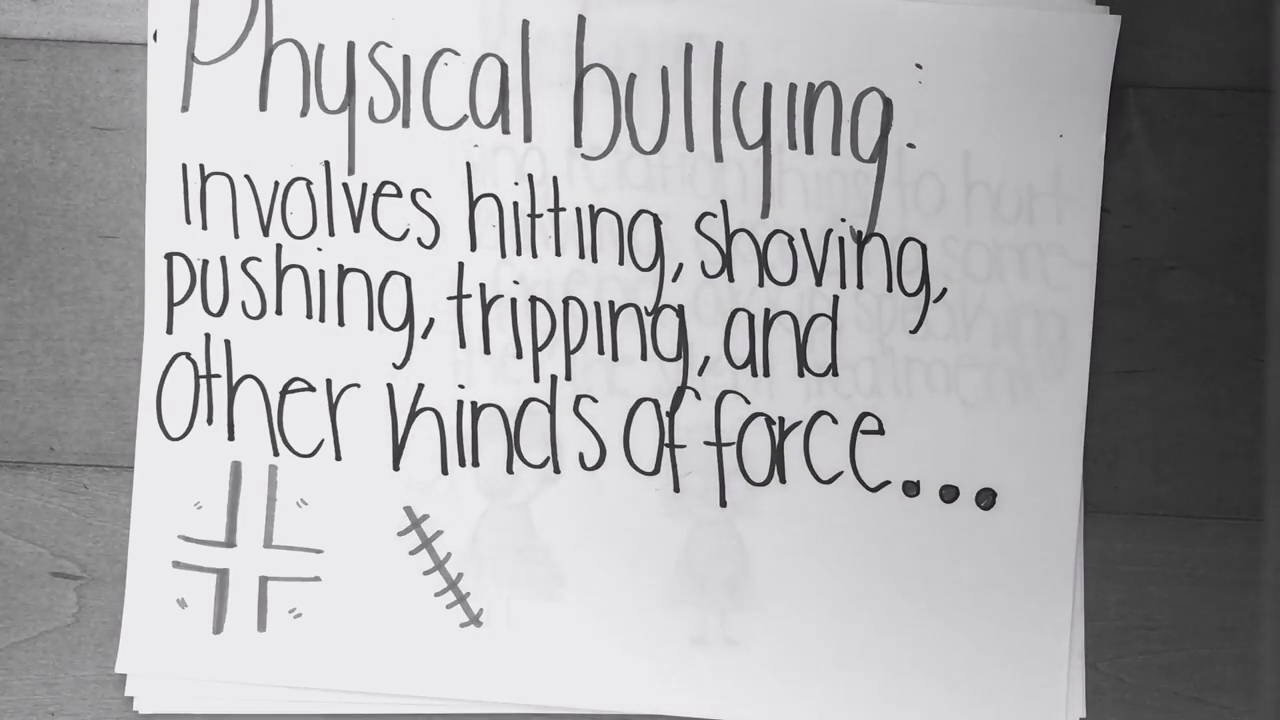 Physical bullying:
involves hitting, shoving,
pushing, tripping, and
other kinds of force...